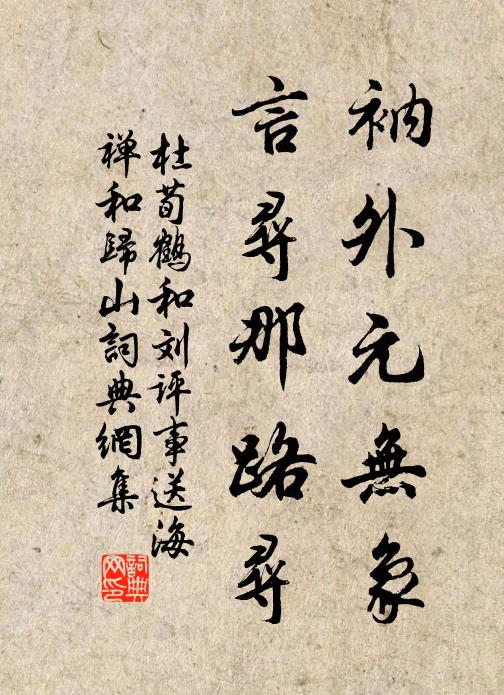 衲外元無象
言尋那路尋
杜荀鶴和刘评事送海
禅和歸山詞典網集
詞典网印